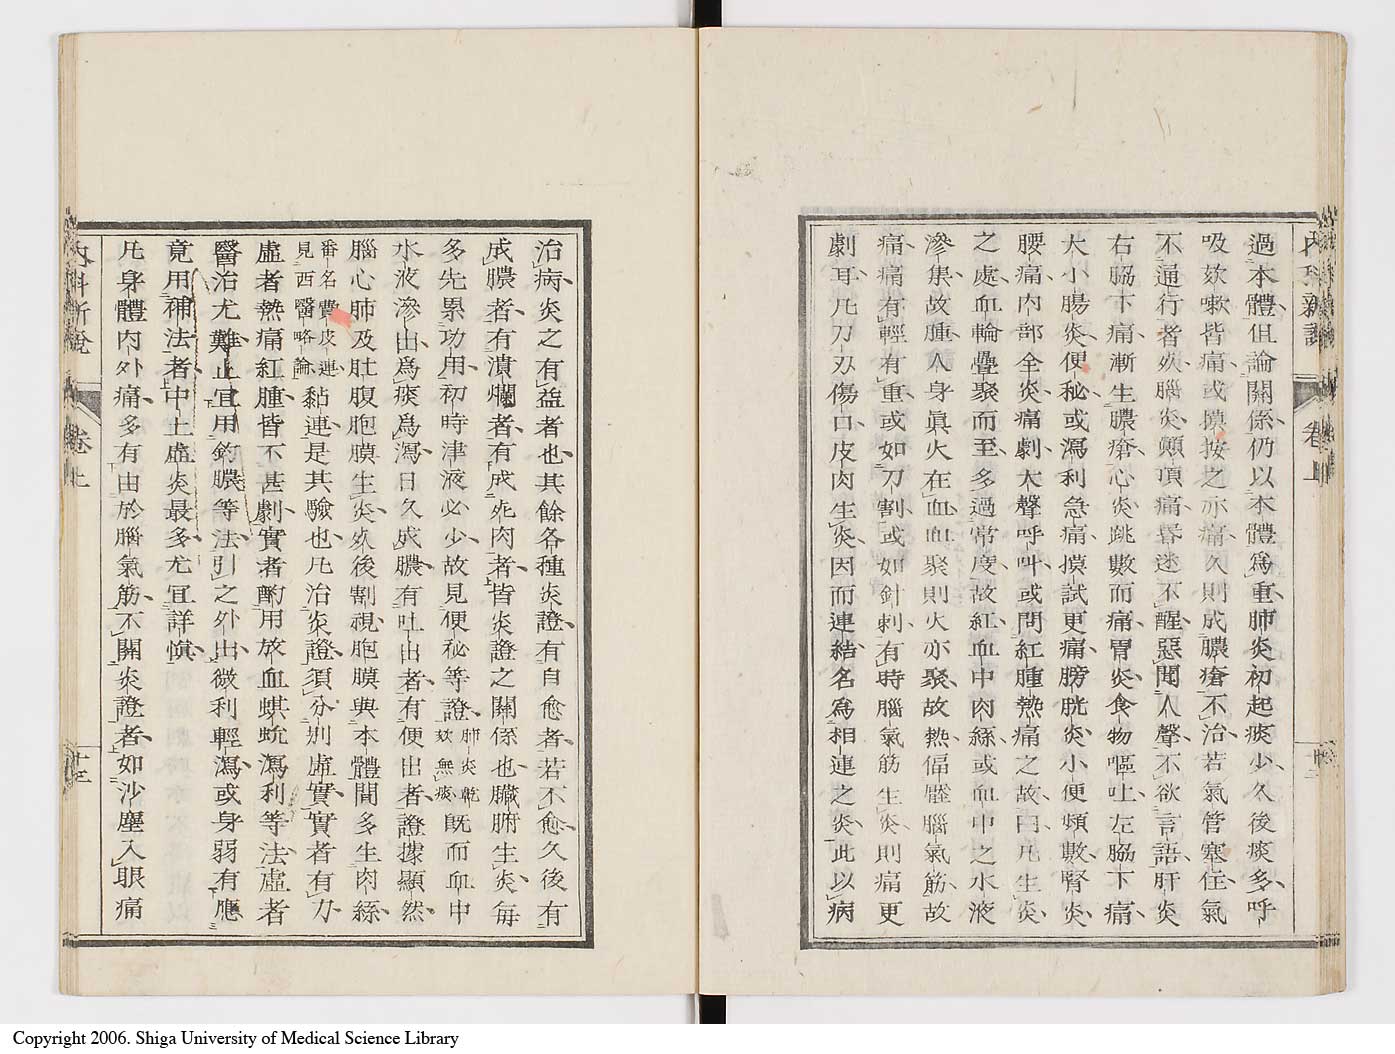 內科新說
卷上
十二
過本體但論關係仍以本體爲重肺炎初起痰少久後痰多呼
吸欬嗽皆痛或摸按之亦痛久則成膿瘡不治若氣管塞住氣
不通行者死腦炎顛頂痛昏迷不醒惡聞人聲不欲言語肝炎
右脇下痛漸生膿瘡心炎跳數而痛胃炎食物嘔吐左脇下痛
大小腸炎便秘或瀉利急痛摸試更痛膀胱炎小便頻數腎炎
腰痛內部全炎痛劇大聲呼叫或問紅腫熱痛之故曰凡生炎
之處血輪疊聚而至多過常度故紅血中肉絲或血中之水液
滲集故腫人身眞火在血血聚則火亦聚故熱偪壓腦氣筋故
痛痛有輕有重或如刀割或如針刺有時腦氣筋生炎則痛更
劇耳凡刀刃傷口皮肉生炎因而連結名爲相連之炎此以病
治病炎之有益者也其餘各種炎證有自愈者若不愈久後有
成膿者有潰爛者有成死肉者皆炎證之關係也臟腑生炎每
多先累功用初時津液必少故見便秘等證肺炎乾欬無痰旣而血中
水液滲出爲痰爲瀉日久成膿有吐出者有便出者證據顯然
腦心肺及肚腹胞膜生炎死後割視胞膜與本體間多生肉絲
番名費皮連見西醫略論黏連是其驗也凡治炎證須分別虛實實者有力
虛者熱痛紅腫皆不甚劇實者酌用放血蜞蚢瀉利等法虛者
醫治尤難止宜用釣膿等法引之外出微利輕瀉或身弱有應
竟用補法者中土虛炎最多尤宜詳愼
凡身體內外痛多有由於腦氣筋不關炎證者如沙塵入眼痛
內科新說
卷上
十三
Copyright 2006. Shiga University of Medical Science Library